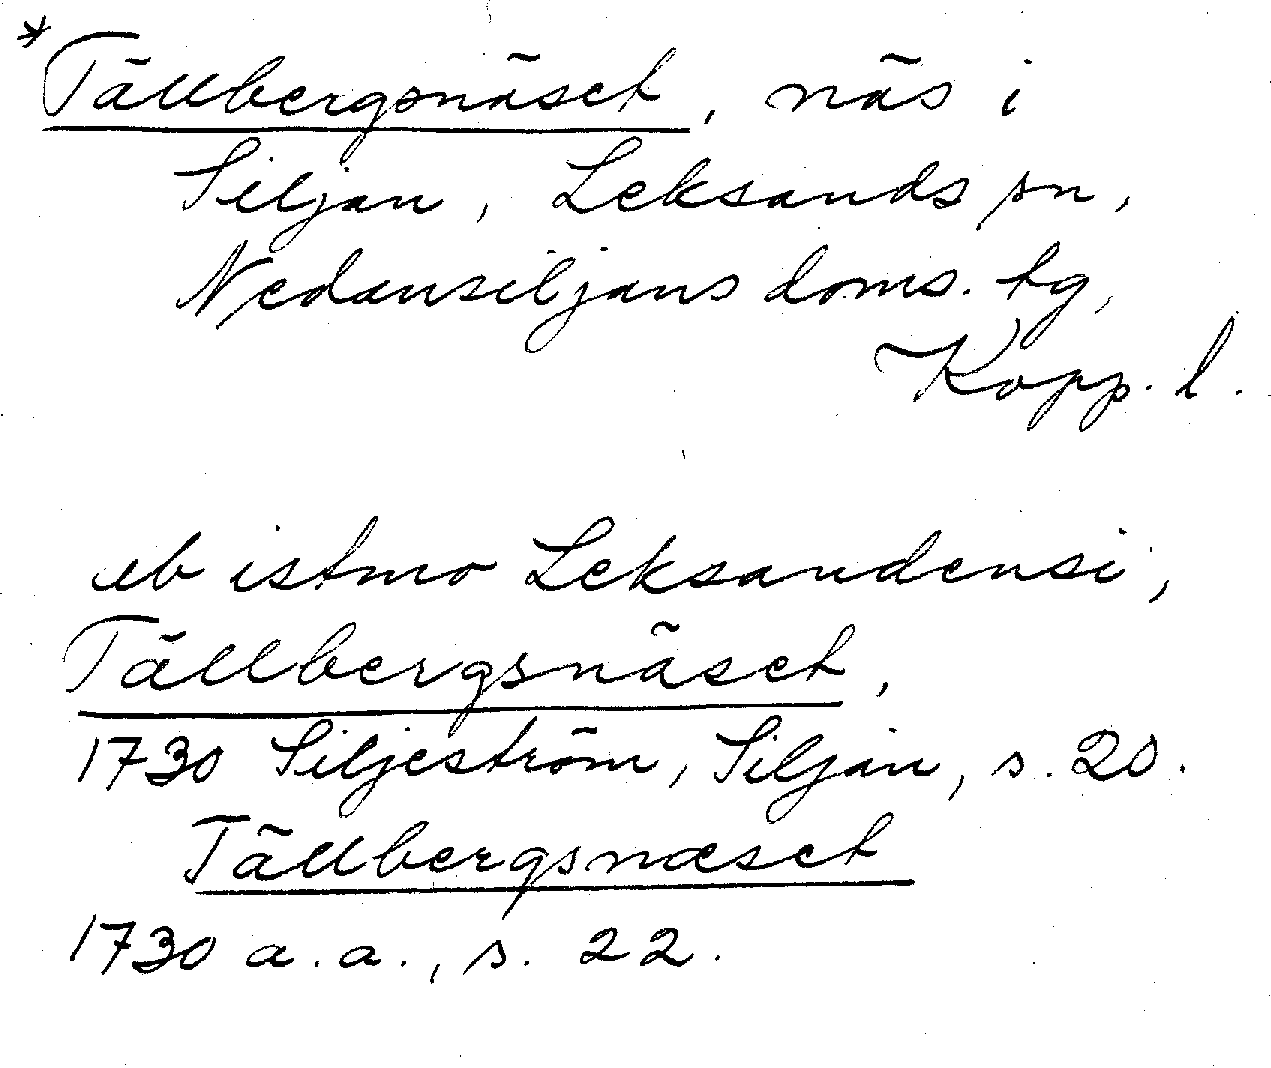 *Tällbergsnäset, näs i
Siljan, Leksands sn,
Nedansiljans doms. tg,
Kopp. l.
ab istmo Leksandensi,
Tällbergsnäset,
1730 Siljeström, Siljan, s. 20.
Tällbergsnæset
1730 a.a., s. 22.